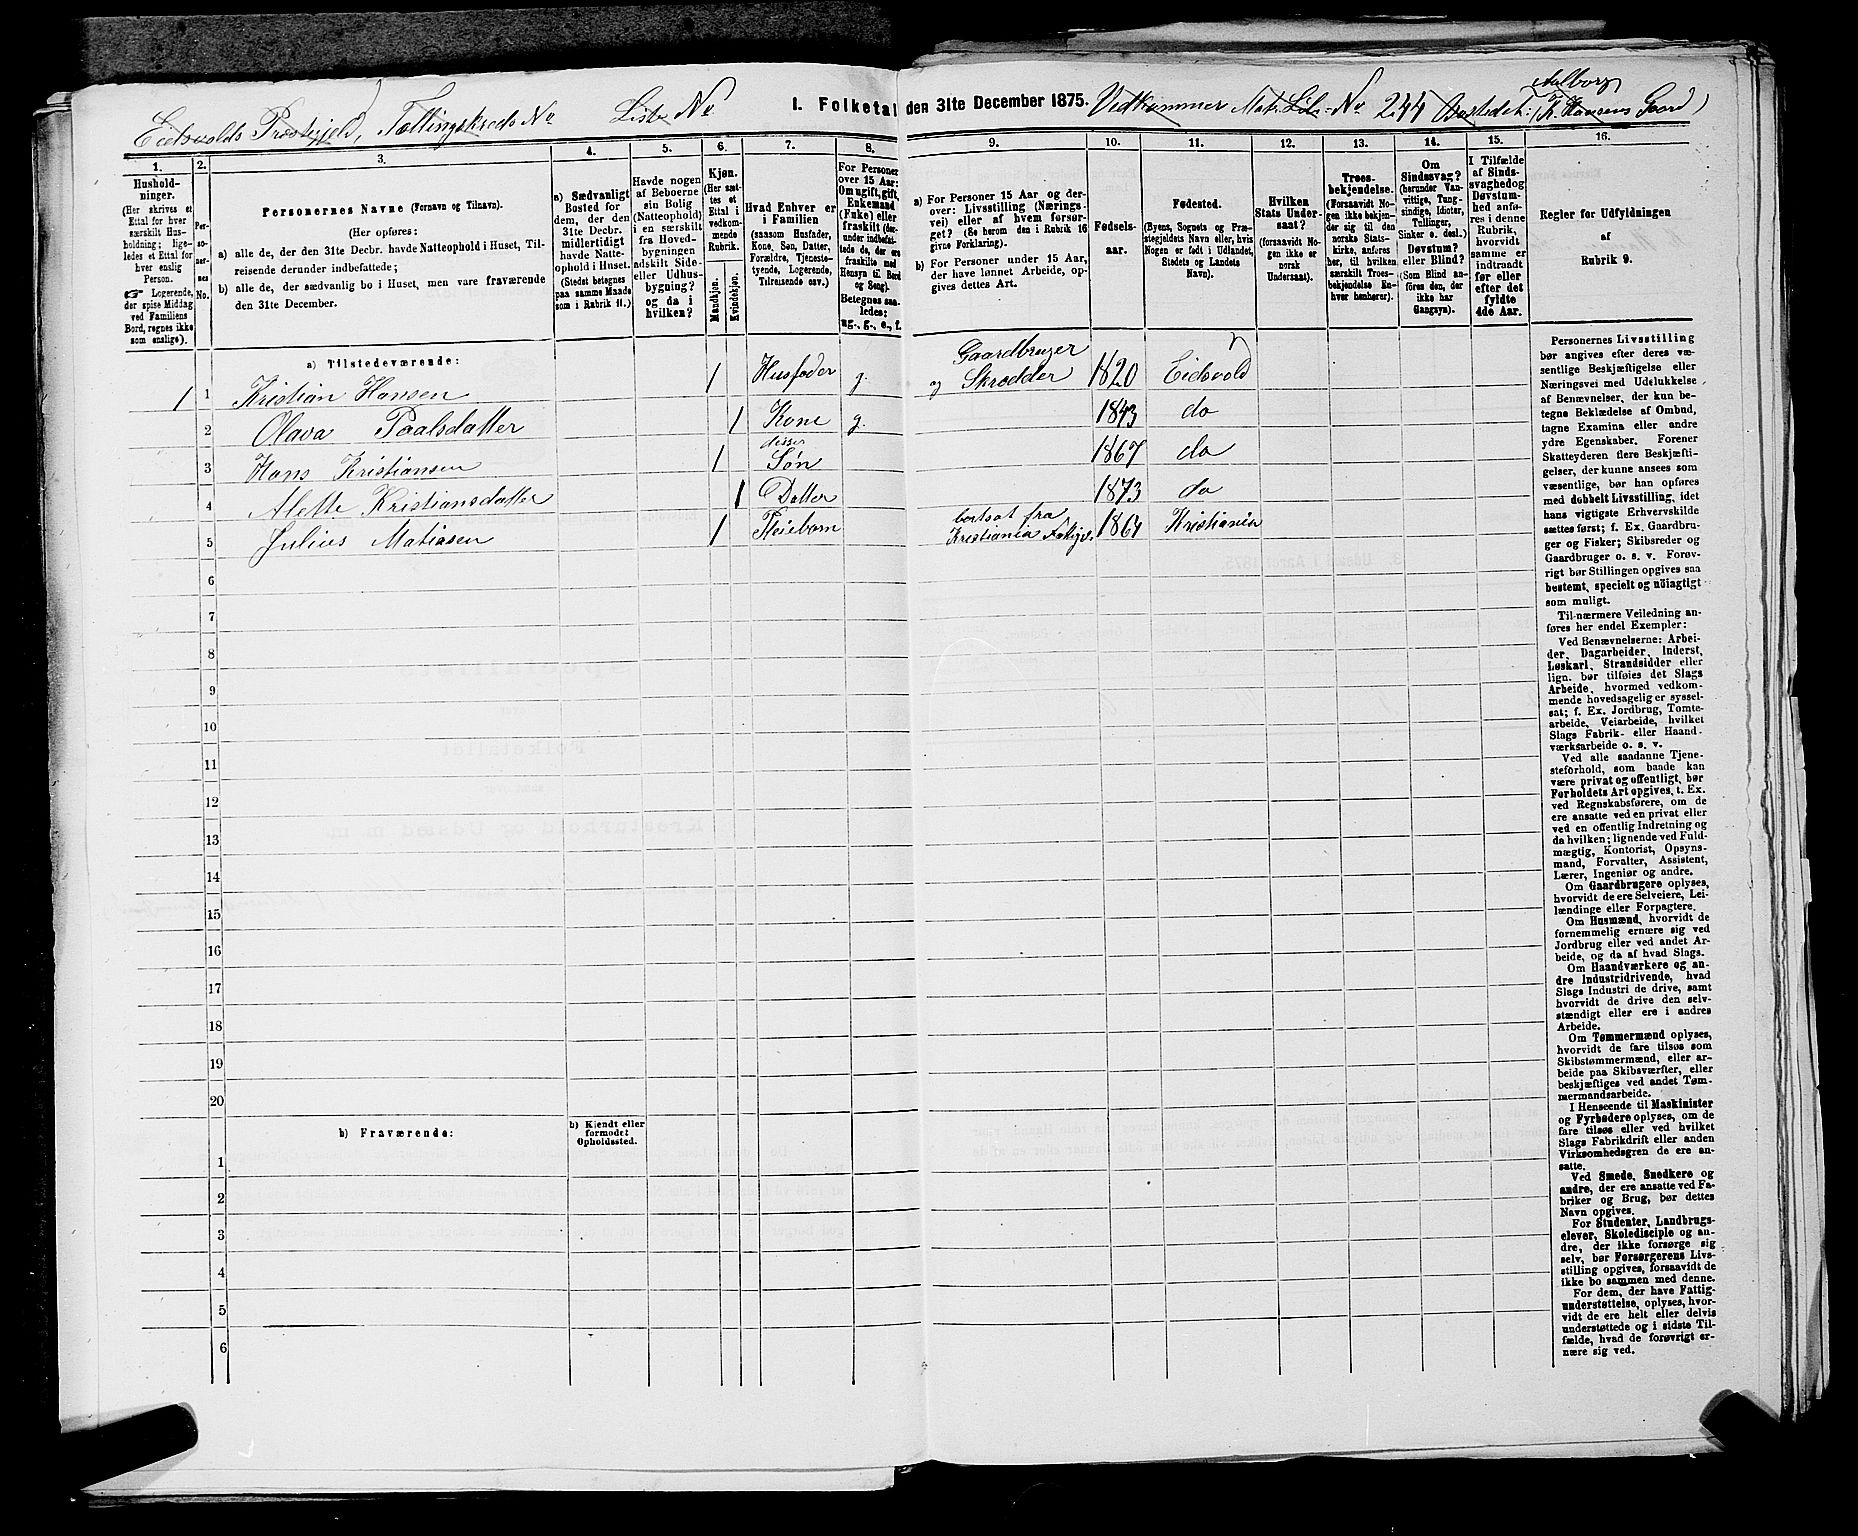 Eidsvolds Præstegjeld, Tællingskreds No Liste No
I. Folketal den 31te December 1875.
Vedkommer Matr. Løb-No 244 Bostedet: (K. Hansens Gaard)
Aalborg
1.
Husholdninger.
(Her skrives et
Ettal for hver
særskilt Husholdning; ligeledes et Ettal for
hver enslig
Person.
☞ Logerende,
der spise Middag
ved Familiens
Bord, regnes ikke
som enslige).
2.
Personernes
No.
3.
Personernes Navne (Fornavn og Tilnavn).
(Her opføres:
a) alle de, der den 31te Decbr. havde Natteophold i Huset, Tilreisende derunder indbefattede;
b) alle de, der sædvanlig bo i Huset, men vare fraværende
den 31te December.
4.
a) Sædvanligt
Bosted for
dem, der den
31te Decbr.
midlertidigt
havde Natteophold i Huset.
(Stedet betegnes
paa samme Maade
som i Rubrik 11.)
5.
Havde nogen
af Beboerne
sin Bolig
(Natteophold)
i en særskilt
fra Hovedbygningen
adskilt Side-
eller Udhusbygning?
og da i
hvilken?
6.
Kjøn.
(Her sættes et
Ettal i
vedkommende
Rubrik.
Mandkjøn.
Kvindekjøn.
7.
Hvad Enhver er
i Familien
(saasom Husfader,
Kone, Søn, Datter,
Forældre, Tjenestetyende, Logerende,
Tilreisende osv.)
8.
For Personer
over 15 Aar:
Om ugift, gift,
Enkemand
(Enke) eller
fraskilt
Betegnes saaledes:
ug., g., e., f.
9.
a) For Personer 15 Aar og derover: Livsstilling (Næringsvei) eller af hvem forsørget? (Se herom den i Rubrik 16
givne Forklaring).
b) For Personer under 15 Aar,
der have lønnet Arbeide, opgives dettes Art.
10.
Fødselsaar.
11.
Fødested.
(Byens, Sognets og Præstegjeldets Navn eller, hvis
Nogen er født i Udlandet,
Stedets og Landets
Navn).
12.
Hvilken
Stats Undersaat?
(forsaavidt Nogen ikke er
norsk
Undersaat).
13.
Troesbekjendelse.
(Forsaavidt Nogen ikke bekjender sig til
den norske Statskirke, anføres
her, til hvilken
særskilt Troesbekjendelse Enhver henhører).
14.
Om
Sindssvag?
(herunder Vanvittige, Tungsindige, Idioter,
Tullinger,
Sinker o. desl.)
Døvstum?
eller Blind?
(Som Blind anføres den, der
ikke har
Gangsyn).
15.
I Tilfælde
af Sindssvaghed og
Døvstumhed, anføres i denne
Rubrik,
hvorvidt
samme er
indtraadt
før eller
efter det
fyldte
4de Aar.
16.
Regler for Udfyldningen
af
Rubrik 9.
a) Tilstedeværende:
1 1 Kristian Hansen 1 Husfader g. Gaardbruger og Skrædder 1820 Eidsvold
2 Olava Paalsdatter 1 Kone g. 1843 do
3 Hans Kristiansen 1 disses Søn 1867 do
4 Alette Kristiansdatter 1 Datter 1873 do
5 Julius Matiasen 1 Pleiebarn bortsat fra Kristiania Fattigv. 1864 Kristiania
6
7
8
9
10
11
12
13
14
15
16
17
18
19
20
b) Fraværende:
b) Kjendt eller
formodet
Opholdssted.
1
2
3
4
5
6
Personernes Livsstilling
bør angives efter deres væsentlige Beskjæftigelse eller
Næringsvei med Udelukkelse
af Benævnelser, der kun betegne Beklædelse af Ombud,
tagne Examina eller andre
ydre Egenskaber. Forener
Skatteyderen flere Beskjæftigelser, der kunne ansees som
væsentlige, bør han opføres
med dobbelt Livsstilling, idet
hans vigtigste Erhvervskilde
sættes først; f. Ex. Gaardbruger og Fisker; Skibsreder og
Gaardbruger o. s. v. Forøvrigt bør Stillingen opgives saa
bestemt, specielt og nøiagtigt
som muligt.
Til nærmere Veiledning anføres her endel Exempler:
Ved Benævnelserne: Arbeider, Dagarbeider, Inderst,
Løskarl, Strandsidder eller
lign. bør tilføies det Slags
Arbeide, hvormed vedkommende hovedsagelig er sysselsat; f. Ex. Jordbrug, Tomtearbeide, Veiarbeide, hvilket
Slags Fabrik- eller Haandværksarbeide o. s. v.
Ved alle saadanne Tjenesteforhold, som baade kan
være privat og offentligt, bør
Forholdets Art opgives, t. Ex.
ved Regnskabsførere, om de
ere ansatte ved en privat eller
ved en offentlig Indretning og
da hvilken; lignende ved Fuldmægtig, Kontorist, Opsynsmand, Forvalter, Assistent,
Lærer, Ingeniør og andre.
Om Gaardbrugere oplyses,
hvorvidt de ere Selveiere, Leilændinge eller Forpagtere.
Om Husmænd, hvorvidt de
fornemmelig ernære sig ved
Jordbrug eller ved andet Arbeide, og da af hvad Slags.
Om Haandværkere og andre Industridrivende, hvad
Slags Industri de drive, samt
hvorvidt de drive den selvstændigt eller ere i andres
Arbeide.
Om Tømmermænd oplyses,
hvorvidt de fare tilsøs som
Skibstømmermænd, eller arbeide paa Skibsværfter, eller
beskjæftiges ved andet Tømmermandsarbeide.
I Henseende til Maskinister
og Fyrbødere oplyses, om de
fare tilsøs eller ved hvilket
Slags Fabrikdrift eller anden
Virksomhedsgren de ere ansatte.
Ved Smede, Snedkere og
andre, der ere ansatte ved Fabriker og Brug, bør dettes
Navn opgives.
For Studenter, Landbrugselever, Skoledisciple og andre, der ikke forsørge sig
selv, bør Forsørgerens Livsstilling opgives, forsaavidt de
ikke bo sammen med denne.
For dem, der have Fattigunderstøttelse, oplyses, hvorvidt de ere helt eller delvis
understøttede og i sidste Tilfælde, hvad de forøvrigt ernære sig ved.